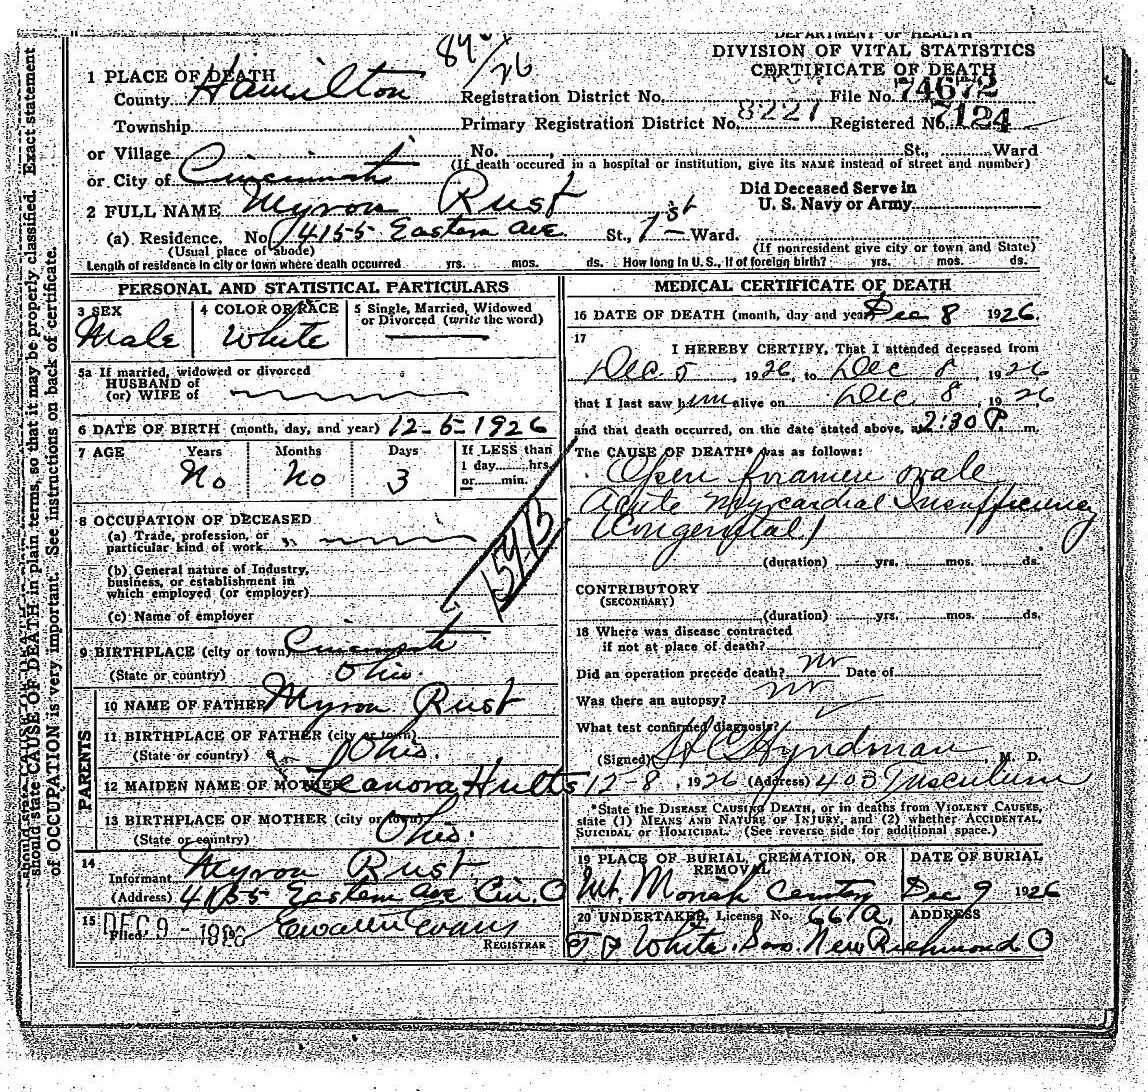 DEPARTMENT OF HEALTH
DIVISION OF VITAL STATISTICS
CERTIFICATE OF DEATH
1 PLACE OF DEATH
County Hamilton Registration District No. File No. 74672
Township Primary Registration District No. 8227 Registered No. 7124
or Village No. , St., Ward
(If death occured in a hospital or institution, give its NAME instead of street and number)
or City of Cincinnati
2 FULL NAME Myron Rust
Did Deceased Serve in
U. S. Navy or Army
(a) Residence. No. 4155 Eastern Ave. St., 1st Ward.
(Usual place of abode) (If nonresident give city or town and State)
Length of residence in city or town where death occurred yrs. mos. ds. How long in U. S., if of foreign birth? yrs. mos. ds.
PERSONAL AND STATISTICAL PARTICULARS
3 SEX 4 COLOR OR RACE 5 Single, Married, Widowed
or Divorced (write the word)
Male White
5a If married, widowed or divorced
HUSBAND of
(or) WIFE of
6 DATE OF BIRTH (month, day, and year) 12-5-1926
7 AGE Years Months Days If LESS than
1 day hrs.
or min.
No No 3
8 OCCUPATION OF DECEASED
(a) Trade, profession, or
particular kind of work
(b) General nature of Industry,
business, or establishment in
which employed (or employer)
(c) Name of employer
9 BIRTHPLACE (city or town) Cincinnati
(State or country) Ohio.
PARENTS
10 NAME OF FATHER Myron Rust
11 BIRTHPLACE OF FATHER (city or town)
(State or country) Ohio.
12 MAIDEN NAME OF MOTHER Leanora Hults
13 BIRTHPLACE OF MOTHER (city or town)
(State or country) Ohio.
14
Informant Myron Rust
(Address) 4155 Eastern Ave Cin. O
15 Filed DEC 9 - 1926
REGISTRAR
MEDICAL CERTIFICATE OF DEATH
16 DATE OF DEATH (month, day and year) Dec 8 1926.
17
I HEREBY CERTIFY, That I attended deceased from
Dec. 5, 1926, to Dec 8, 1926
that I last saw him alive on Dec. 8, 1926
and that death occurred, on the date stated above, at 2:30 P. m.
The CAUSE OF DEATH* was as follows:
Open foramen ovale
Acute Myocardial Insufficiency
(Congenital)
(duration) yrs. mos. ds.
CONTRIBUTORY
(SECONDARY)
(duration) yrs. mos. ds.
18 Where was disease contracted
if not at place of death?
Did an operation precede death? no Date of
Was there an autopsy? no
What test confirmed diagnosis?
(Signed) H C Hyndman, M. D.
12-8, 1926 (Address) 403 Tusculum
*State the DISEASE CAUSING DEATH, or in deaths from VIOLENT CAUSES,
state (1) MEANS AND NATURE OF INJURY, and (2) whether ACCIDENTAL,
SUICIDAL or HOMICIDAL. (See reverse side for additional space.)
19 PLACE OF BURIAL, CREMATION, OR
REMOVAL
DATE OF BURIAL
Mt. Moriah Cemetery Dec 9 1926
20 UNDERTAKER, License No. 661a. ADDRESS
White Sons New Richmond O
should state CAUSE OF DEATH in plain terms, so that it may be properly classified. Exact statement
of OCCUPATION is very important. See instructions on back of certificate.